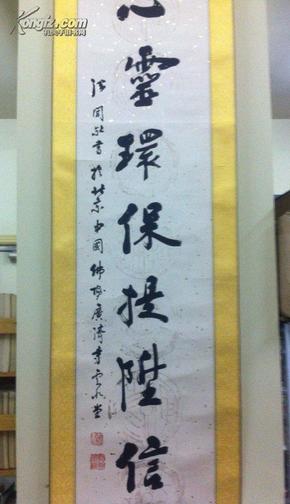 Kongfz.com
孔夫子旧书网
心靈環保提陞信
法闻敬書於北京中國佛協廣濟寺雲水堂